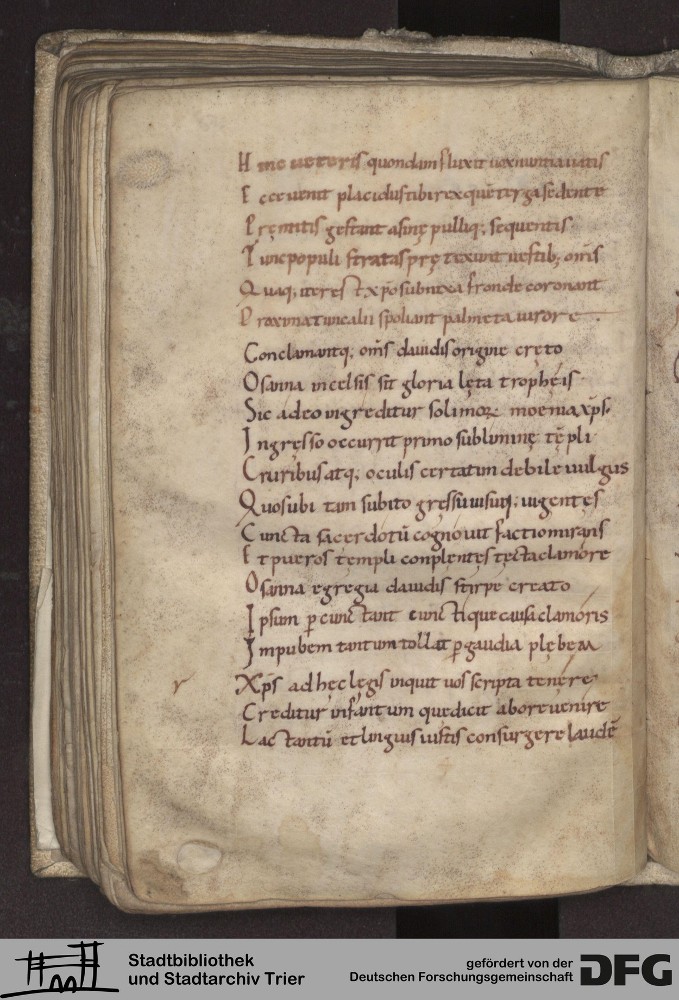 H inc ueteris quondam fluxit uox nuntia uatis
E cce uenit placidus tibi rex quē terga sedente
P ręmitis gestant asinę pulliq; sequentis
T unc populi stratas prętexunt uestib; om̄s
Q uaq; iter est xp̄o subnixa fronde coronant
P roxima tum calii spoliant palmeta uirore
Conclamantq; om̄s dauidis origine creto
Osanna in celsis sit gloria lęta trophęis
Sic adeo ingreditur solimoꝝ moenia xp̄s
Ingresso occurrit primo sub limine tēpli
Cruribus atq; oculis certatim debile uulgus
Quos ubi tam subito gressu uisuq; uigentes
Cuncta sacerdotū cognouit factio mirans
Et pueros templi conplentes tecta clamore
Osanna egregia dauidis stirpe creato
Ipsum p cunctant cuncti que causa clamoris
Impubem tantum tollat p gaudia plebem
r Xp̄s ad hęc legis inquit uos scripta tenere
Creditur infantum que dicit ab ore uenire
Lactantū et linguis iustis consurgere laudē
Stadtbibliothek
und Stadtarchiv Trier
gefördert von der
Deutschen Forschungsgemeinschaft
DFG